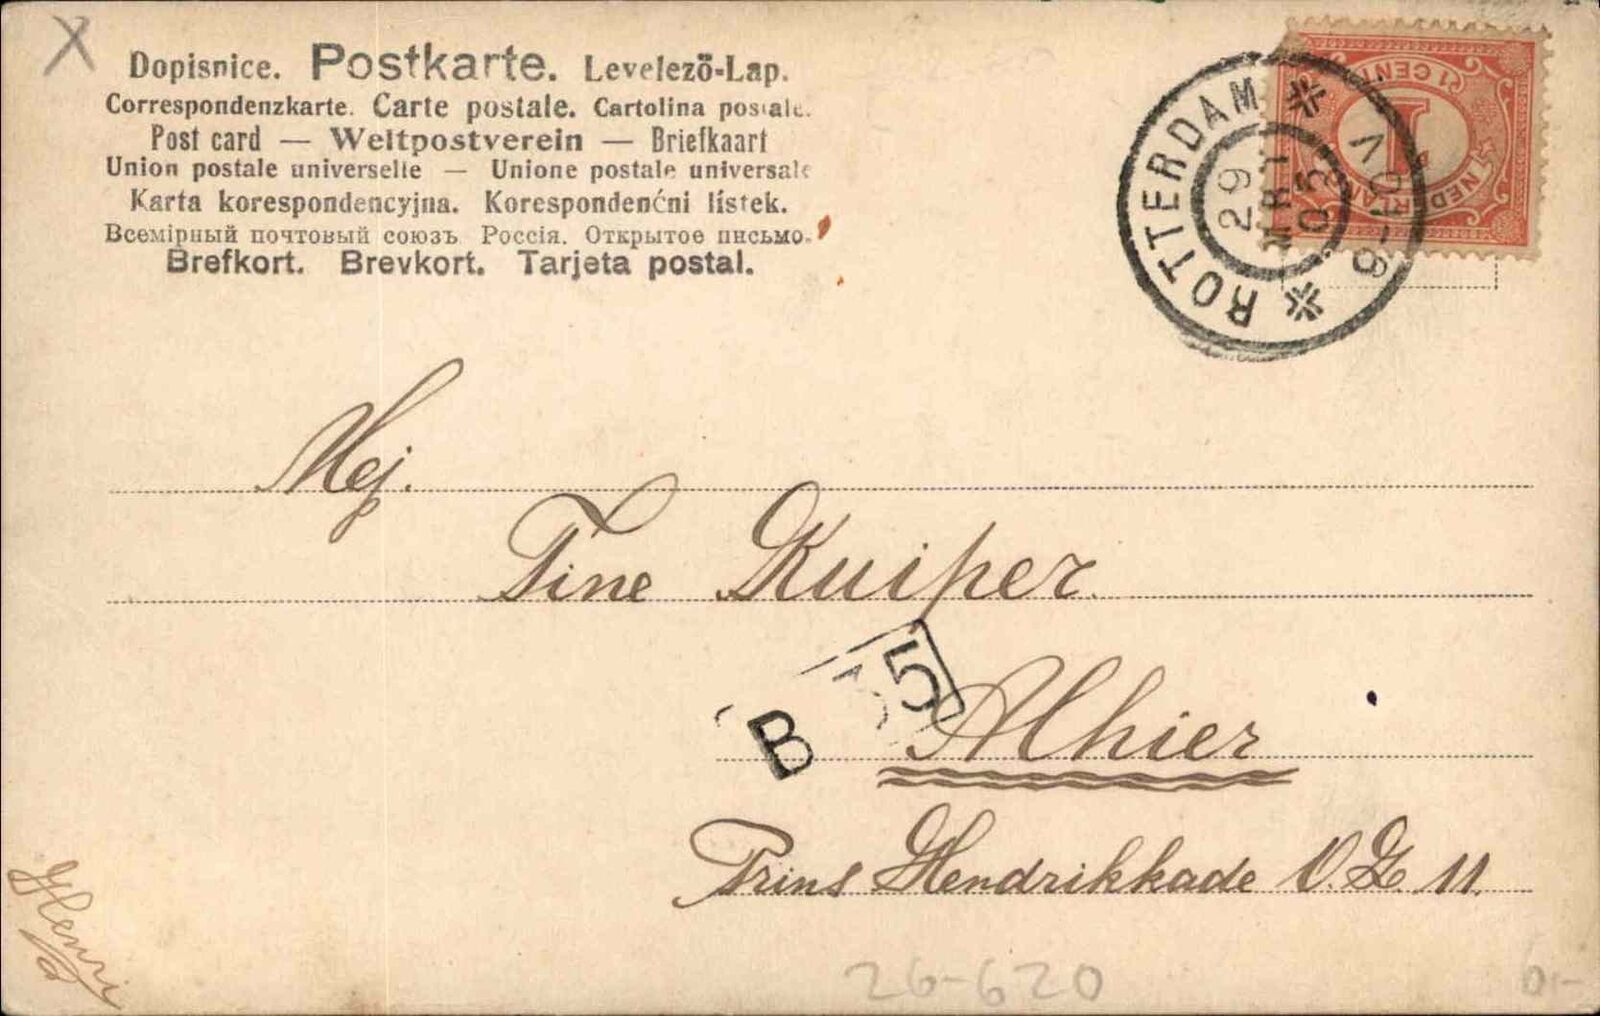 X
Dopisnice. Postkarte. Levelező-Lap.
Correspondenzkarte. Carte postale. Cartolina postale.
Post card — Weltpostverein — Briefkaart
Union postale universelle — Unione postale universale
Karta korespondencyjna. Korespondenćni lístek.
Всемірный почтовый союзъ Россія. Открытое письмо.
Brefkort. Brevkort. Tarjeta postal.
ROTTERDAM
29
MRT
05
1 CENT
1
NED
Mej.
Tine Kuiper
5
B
Alhier
Prins Hendrikkade O.Z 11.
Henri
26-620